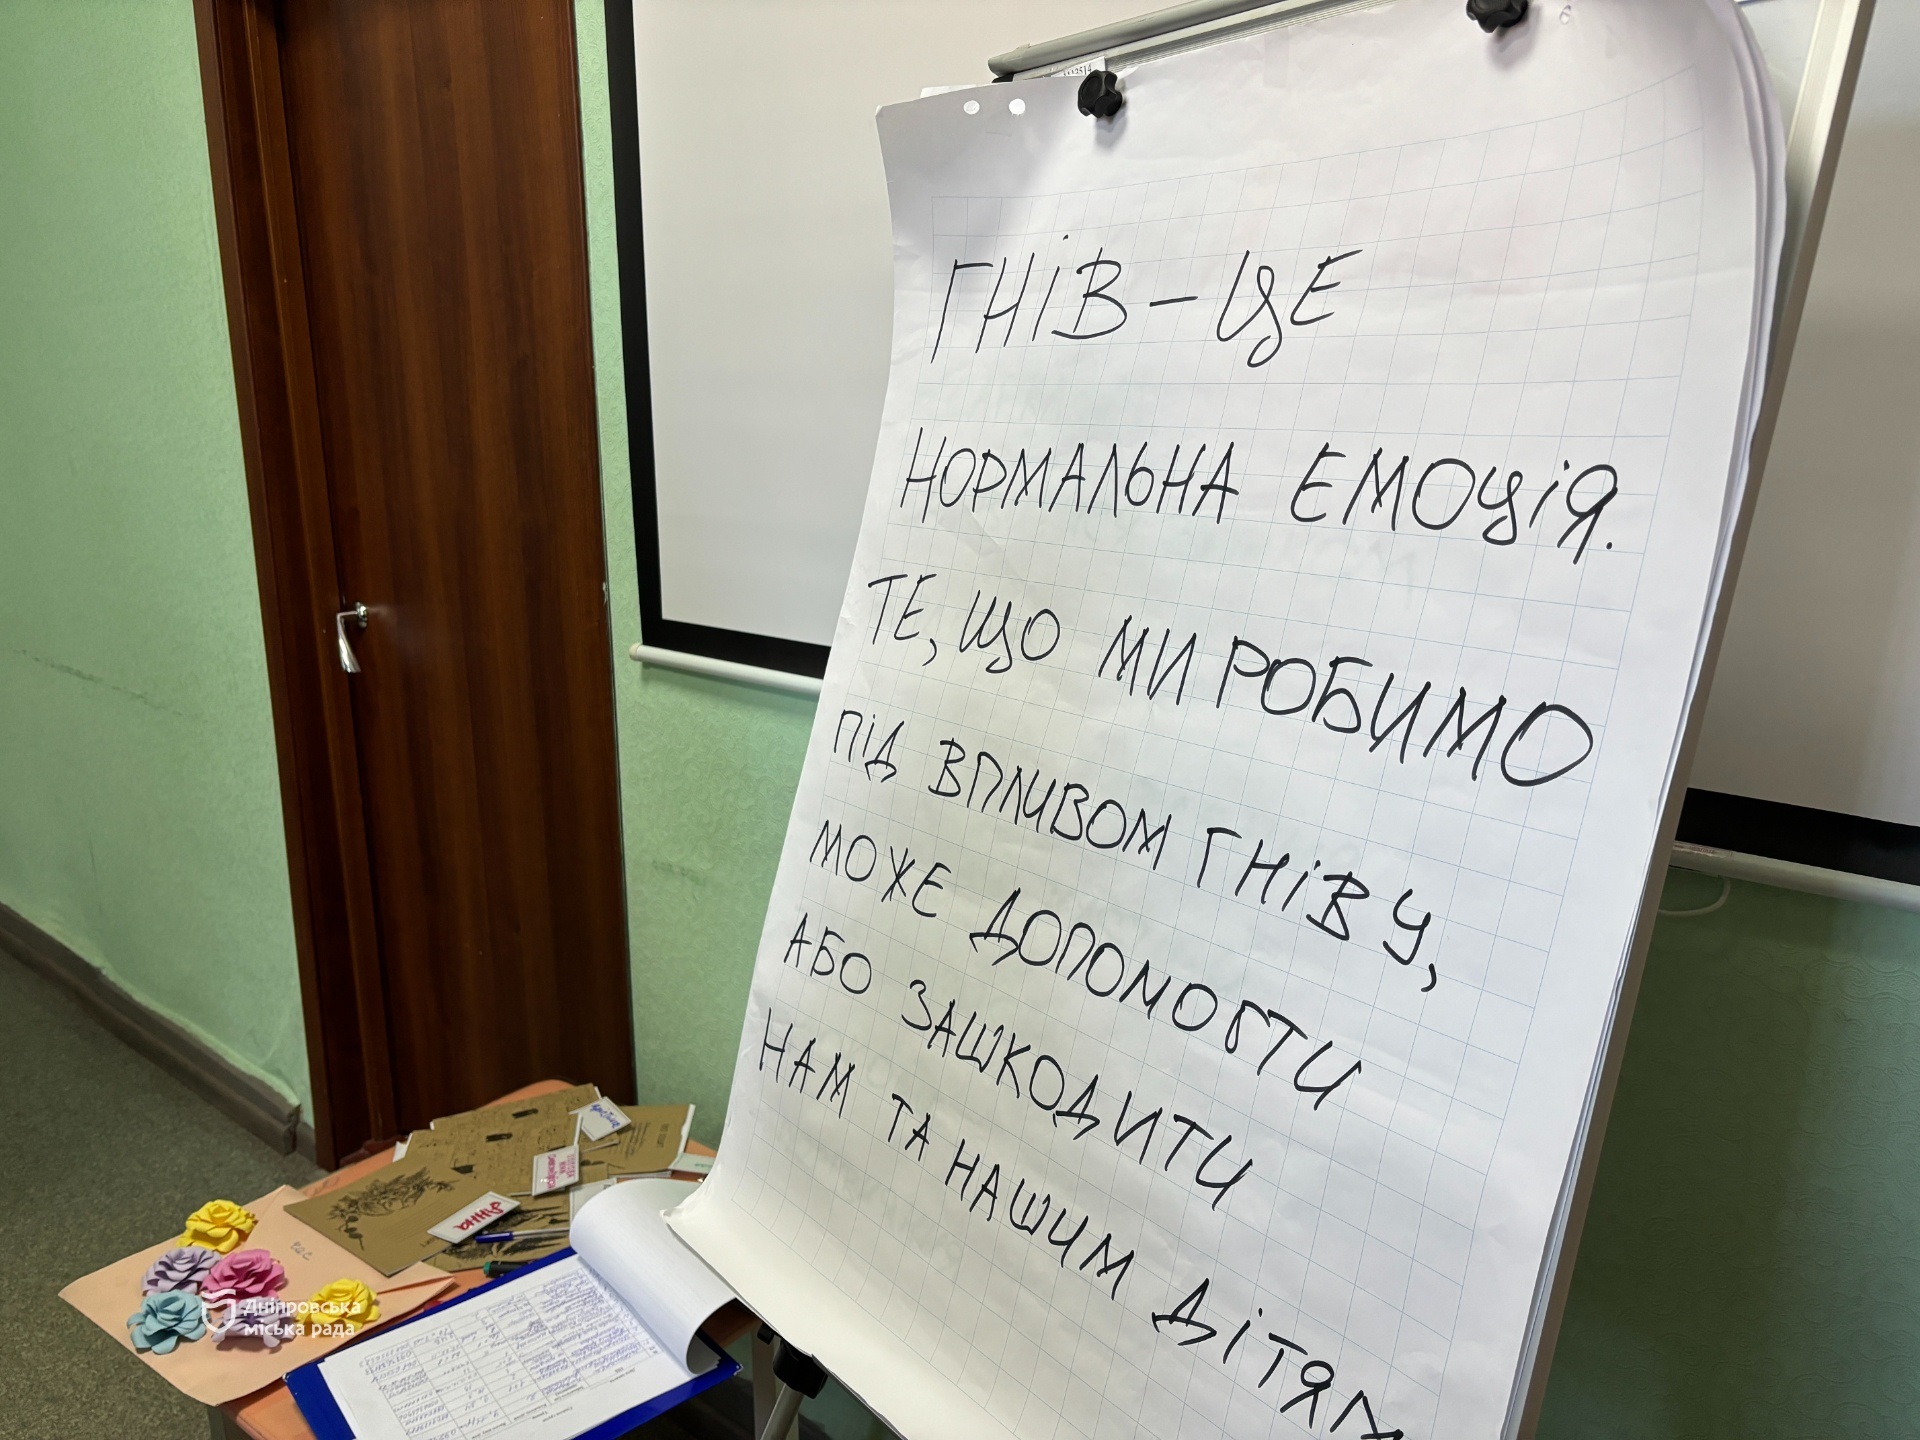 ГНІВ – ЦЕ
НОРМАЛЬНА ЕМОЦІЯ.
ТЕ, ЩО МИ РОБИМО
ПІД ВПЛИВОМ ГНІВУ,
МОЖЕ ДОПОМОГТИ
АБО ЗАШКОДИТИ
НАМ ТА НАШИМ ДІТЯМ
Анна
Дніпровська
міська рада